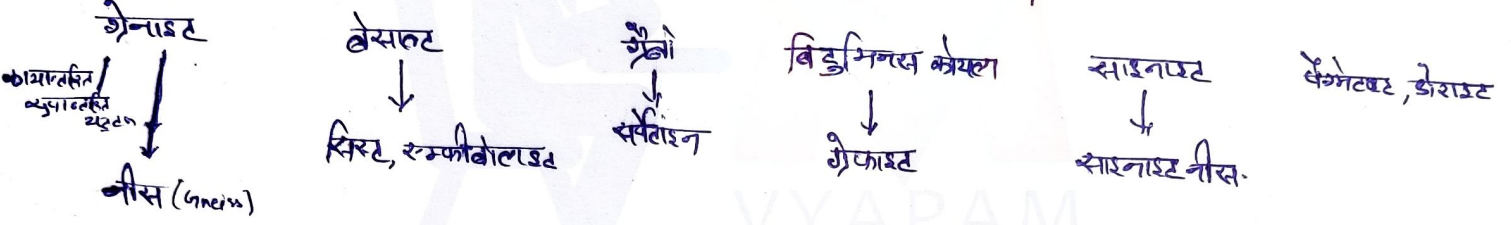 ग्रेनाइट
कायान्तरित
रुपान्तरित
चट्टान
नीस (Gneiss)
बेसाल्ट
सिस्ट, एम्फीबोलाइट
ग्रैब्रो
सर्पेंटाइन
बिटुमिनस कोयला
ग्रेफाइट
साइनाइट
साइनाइट नीस.
पेग्मेटाइट, डोराइट
VYAPAM